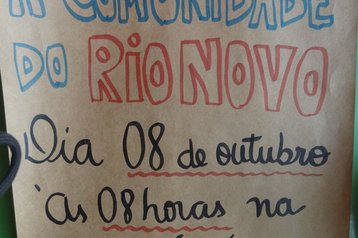 A COMUNIDADE
DO RIO NOVO
Dia 08 de outubro
às 08 horas na